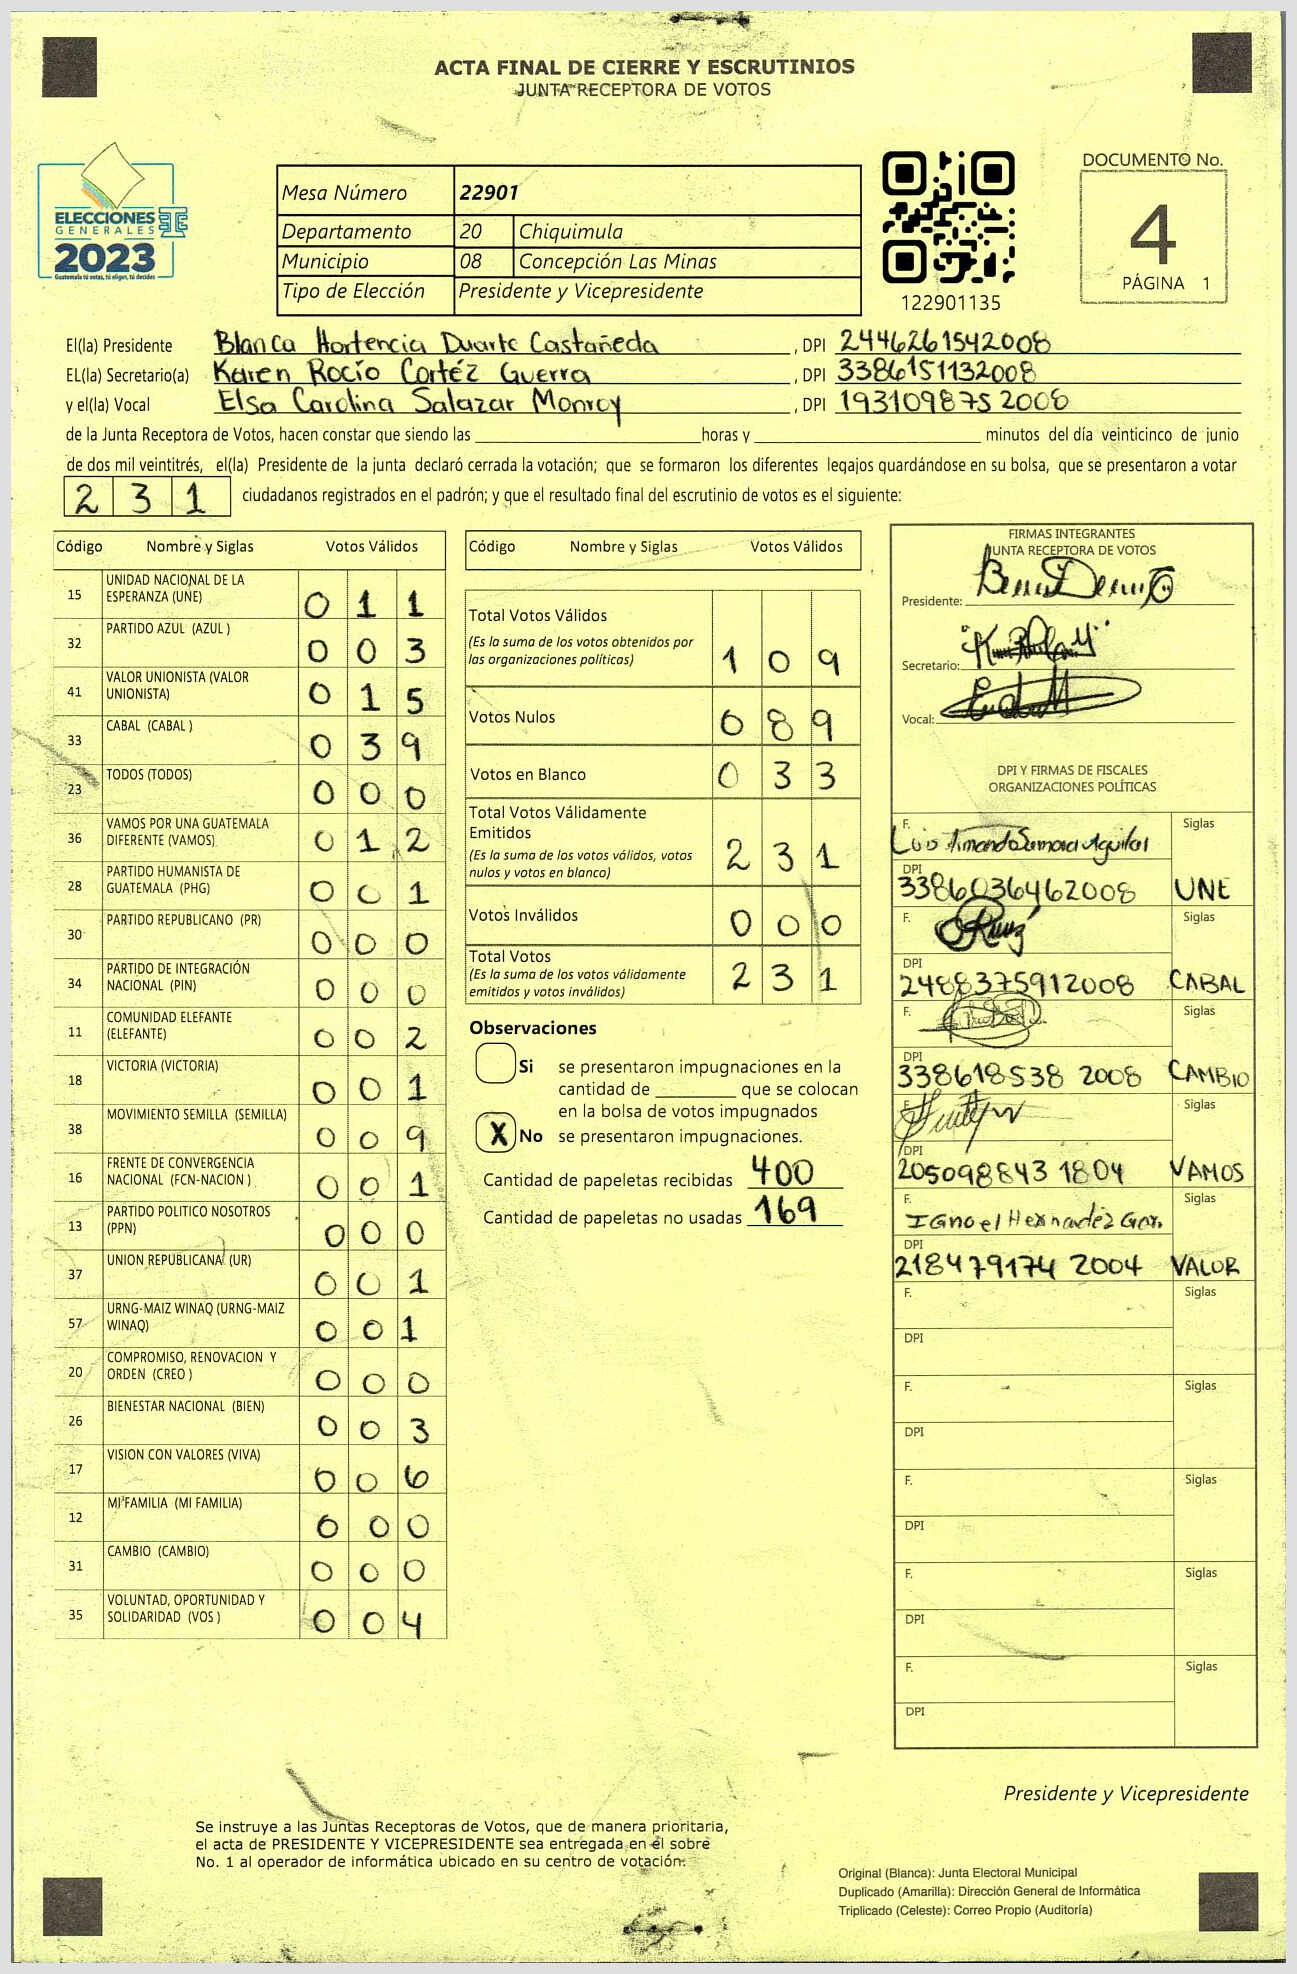 ACTA FINAL DE CIERRE Y ESCRUTINIOS
JUNTA RECEPTORA DE VOTOS
ELECCIONES
GENERALES
2023
Guatemala tú votas, tú eliges, tú decides
Mesa Número 22901
Departamento 20 Chiquimula
Municipio 08 Concepción Las Minas
Tipo de Elección Presidente y Vicepresidente
122901135
DOCUMENTO No.
4
PÁGINA 1
El(la) Presidente Blanca Hortencia Duarte Castañeda , DPI 2446261542008
EL(la) Secretario(a) Karen Rocío Cortéz Guerra , DPI 3386151132008
y el(la) Vocal Elsa Carolina Salazar Monroy , DPI 193109875 2008
de la Junta Receptora de Votos, hacen constar que siendo las horas y minutos del día veinticinco de junio
de dos mil veintitrés, el(la) Presidente de la junta declaró cerrada la votación; que se formaron los diferentes legajos guardándose en su bolsa, que se presentaron a votar
2 3 1 ciudadanos registrados en el padrón; y que el resultado final del escrutinio de votos es el siguiente:
Código Nombre y Siglas Votos Válidos
15 UNIDAD NACIONAL DE LA
ESPERANZA (UNE) 0 1 1
32 PARTIDO AZUL (AZUL ) 0 0 3
41 VALOR UNIONISTA (VALOR
UNIONISTA) 0 1 5
33 CABAL (CABAL ) 0 3 9
23 TODOS (TODOS) 0 0 0
36 VAMOS POR UNA GUATEMALA
DIFERENTE (VAMOS) 0 1 2
28 PARTIDO HUMANISTA DE
GUATEMALA (PHG) 0 0 1
30 PARTIDO REPUBLICANO (PR) 0 0 0
34 PARTIDO DE INTEGRACIÓN
NACIONAL (PIN) 0 0 0
11 COMUNIDAD ELEFANTE
(ELEFANTE) 0 0 2
18 VICTORIA (VICTORIA) 0 0 1
38 MOVIMIENTO SEMILLA (SEMILLA) 0 0 9
16 FRENTE DE CONVERGENCIA
NACIONAL (FCN-NACION ) 0 0 1
13 PARTIDO POLITICO NOSOTROS
(PPN) 0 0 0
37 UNION REPUBLICANA (UR) 0 0 1
57 URNG-MAIZ WINAQ (URNG-MAIZ
WINAQ) 0 0 1
20 COMPROMISO, RENOVACION Y
ORDEN (CREO ) 0 0 0
26 BIENESTAR NACIONAL (BIEN) 0 0 3
17 VISION CON VALORES (VIVA) 0 0 6
12 MI FAMILIA (MI FAMILIA) 0 0 0
31 CAMBIO (CAMBIO) 0 0 0
35 VOLUNTAD, OPORTUNIDAD Y
SOLIDARIDAD (VOS ) 0 0 4
Código Nombre y Siglas Votos Válidos
Total Votos Válidos
(Es la suma de los votos obtenidos por
las organizaciones políticas) 1 0 9
Votos Nulos 0 8 9
Votos en Blanco 0 3 3
Total Votos Válidamente
Emitidos
(Es la suma de los votos válidos, votos
nulos y votos en blanco) 2 3 1
Votos Inválidos 0 0 0
Total Votos
(Es la suma de los votos válidamente
emitidos y votos inválidos) 2 3 1
Observaciones
Si se presentaron impugnaciones en la
cantidad de que se colocan
en la bolsa de votos impugnados
X No se presentaron impugnaciones.
Cantidad de papeletas recibidas 400
Cantidad de papeletas no usadas 169
FIRMAS INTEGRANTES
JUNTA RECEPTORA DE VOTOS
Presidente:
Secretario:
Vocal:
DPI Y FIRMAS DE FISCALES
ORGANIZACIONES POLÍTICAS
F. Siglas
Luis Armando Samora Aguilar
DPI
3386036462008 UNE
F. Siglas
DPI
2488375912008 CABAL
F. Siglas
DPI
338618538 2008 CAMBIO
F. Siglas
DPI
205098843 1804 VAMOS
F. Siglas
DPI
218479174 2004 VALOR
F. Siglas
DPI
F. Siglas
DPI
F. Siglas
DPI
F. Siglas
DPI
F. Siglas
DPI
Presidente y Vicepresidente
Se instruye a las Juntas Receptoras de Votos, que de manera prioritaria,
el acta de PRESIDENTE Y VICEPRESIDENTE sea entregada en el sobre
No. 1 al operador de informática ubicado en su centro de votación.
Original (Blanca): Junta Electoral Municipal
Duplicado (Amarilla): Dirección General de Informática
Triplicado (Celeste): Correo Propio (Auditoría)